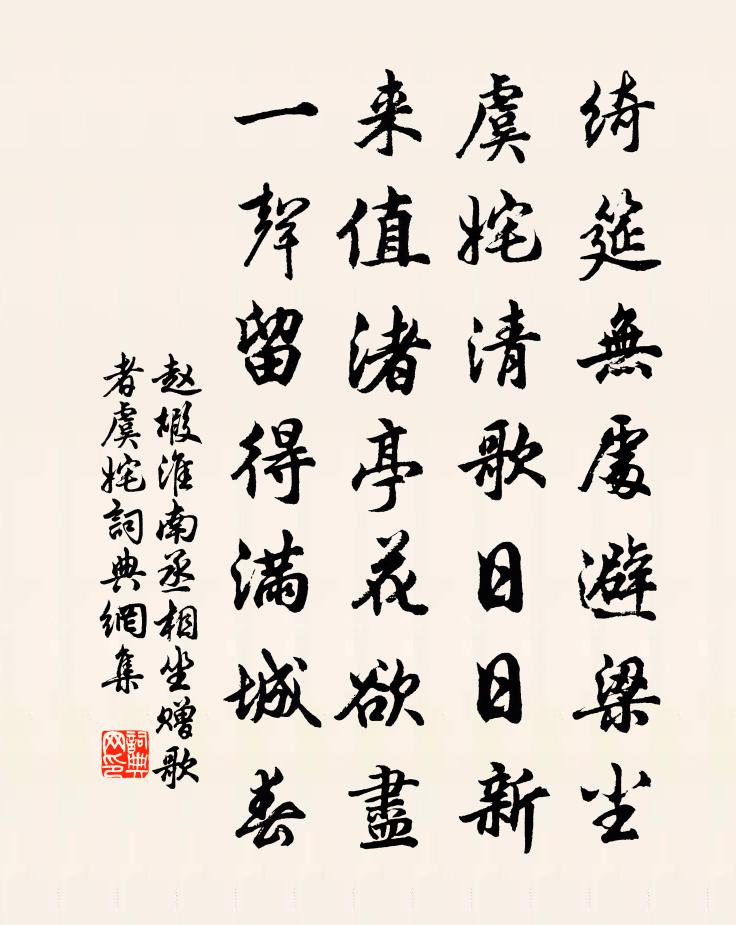 绮筵無處避梁尘
虞姹清歌日日新
来值渚亭花欲盡
一聲留得满城春
赵嘏淮南丞相坐赠歌
者虞姹詞典網集
詞典网印